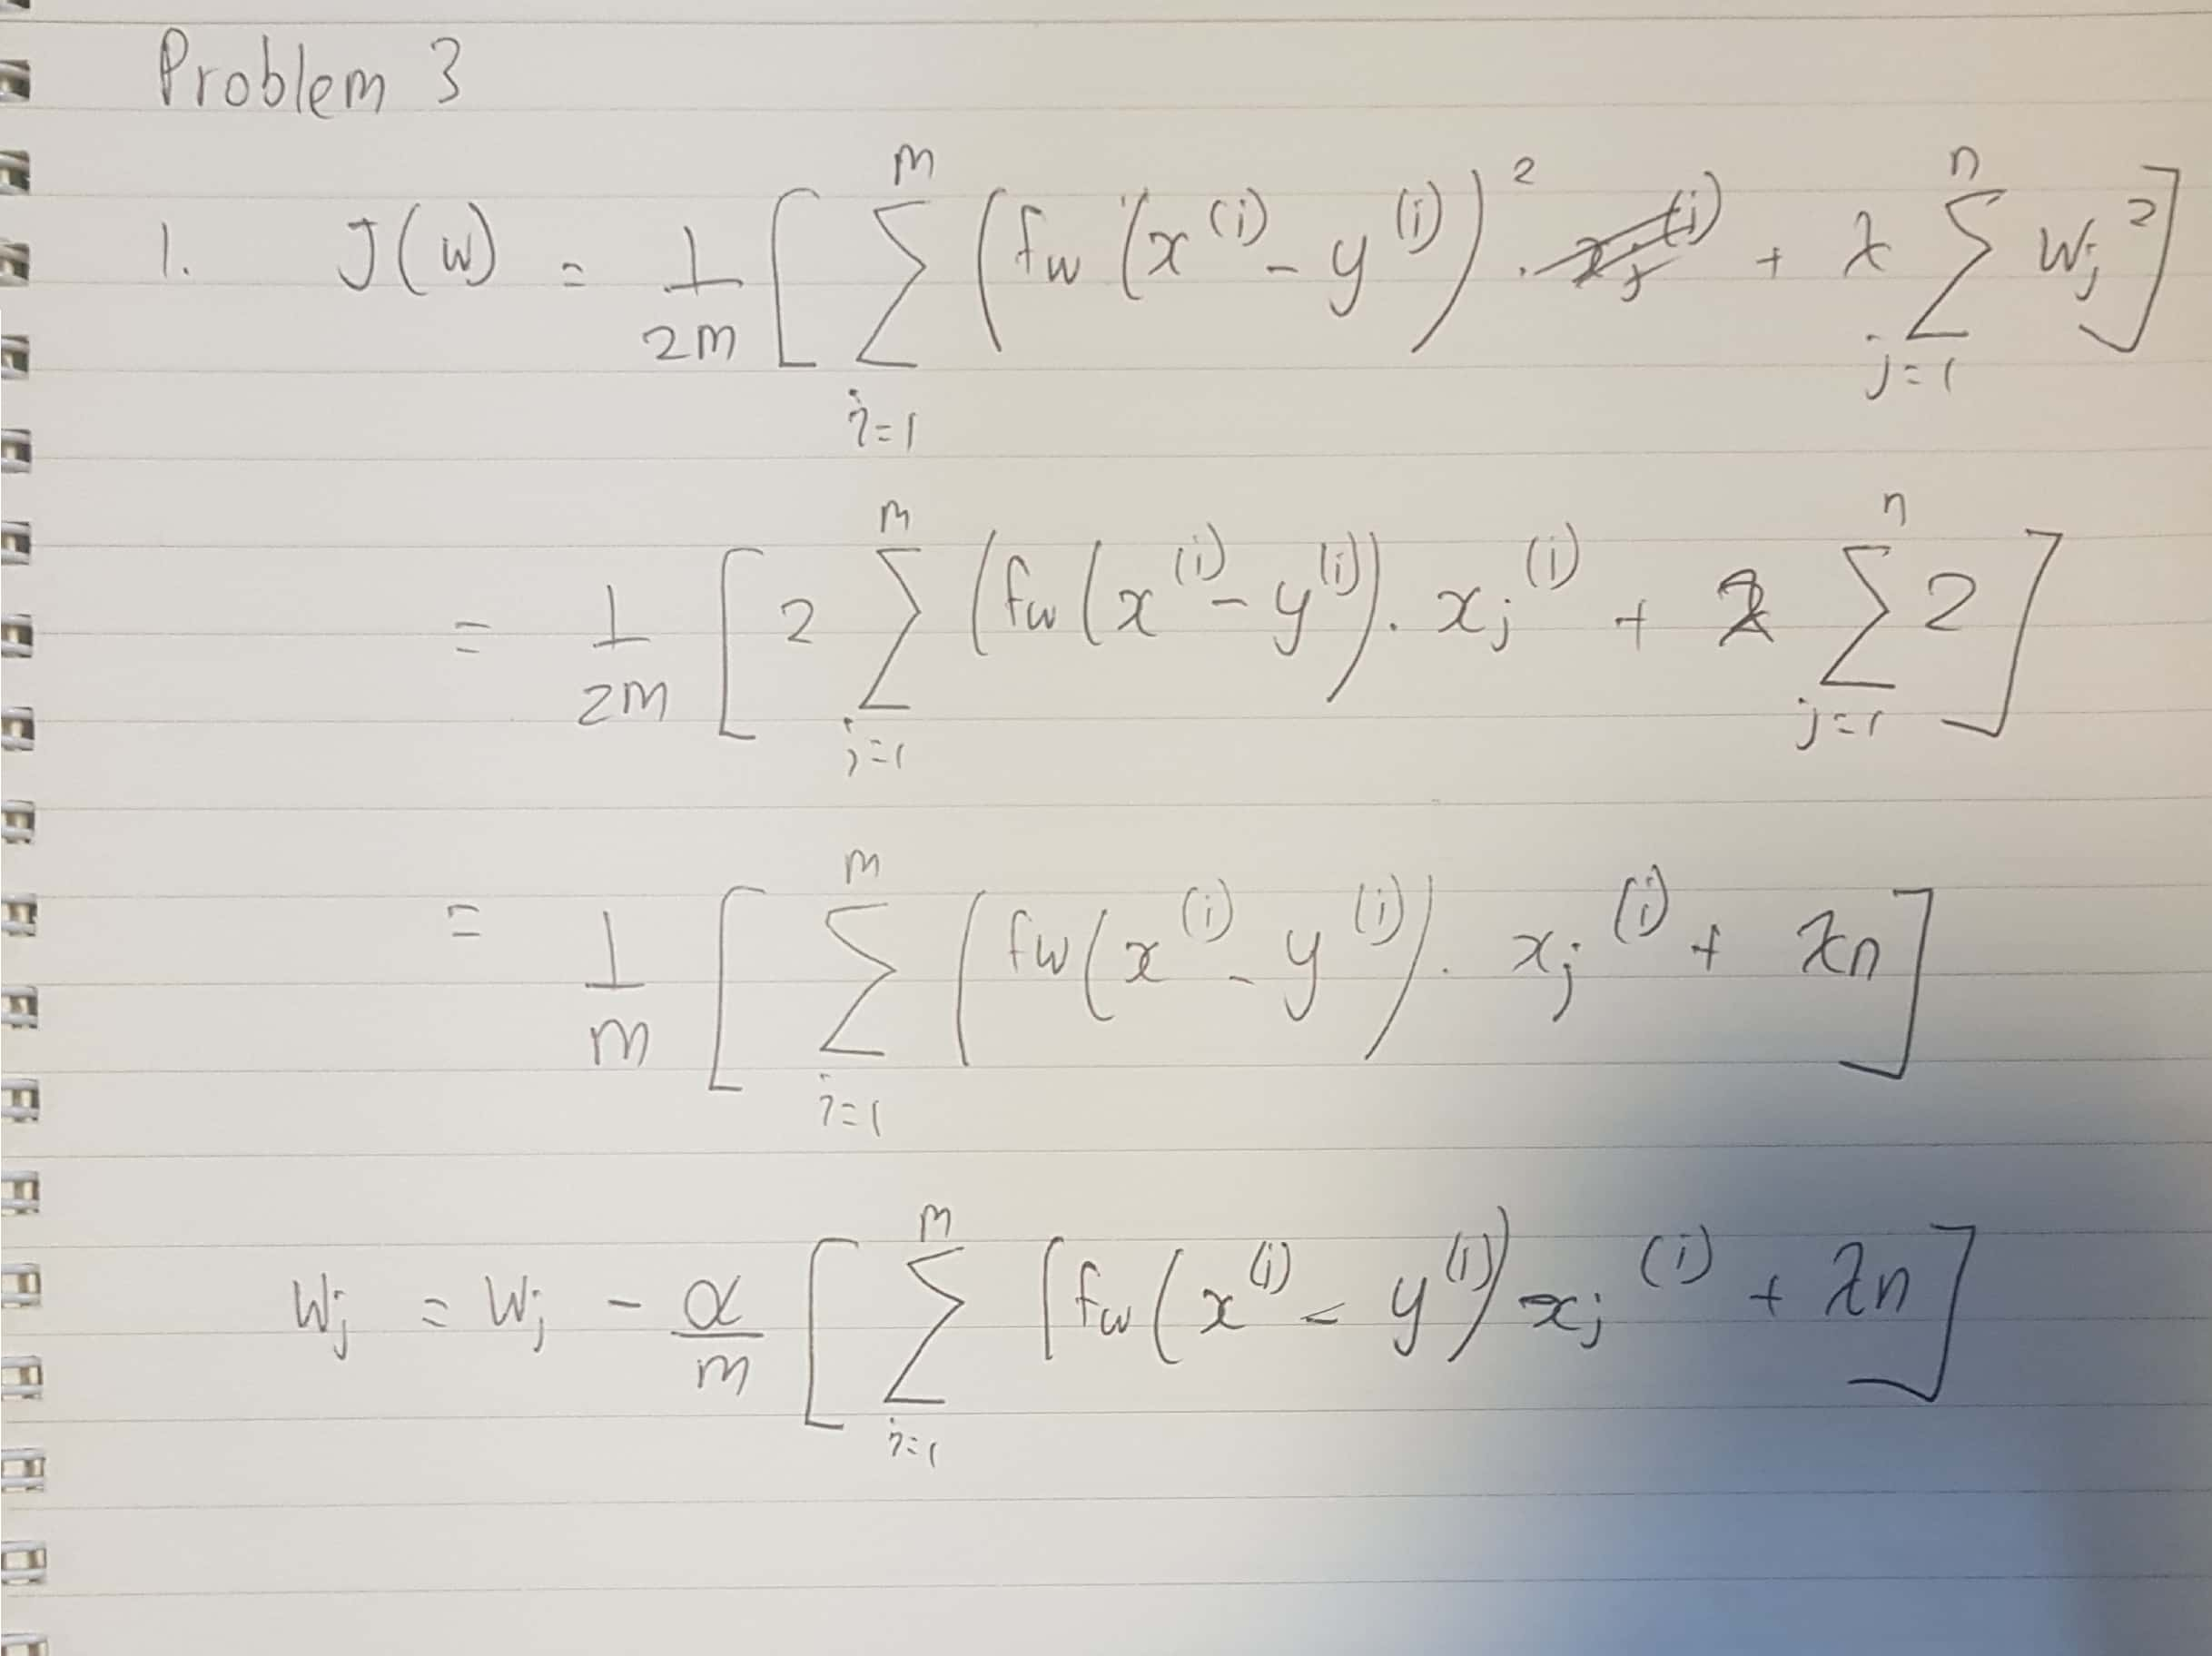 Problem 3
1. J(w) = 1/2m [ ∑_{i=1}^{m} (fw (x^(i) - y^(i))^2 . + λ ∑_{j=1}^{n} wj^2 ]
= 1/2m [ 2 ∑_{i=1}^{m} (fw (x^(i) - y^(i)) . xj^(i) + λ ∑_{j=1}^{n} 2 ]
= 1/m [ ∑_{i=1}^{m} (fw (x^(i) - y^(i)) . xj^(i) + λn ]
wj = wj - α/m [ ∑_{i=1}^{m} (fw (x^(i) - y^(i)) xj^(i) + λn ]